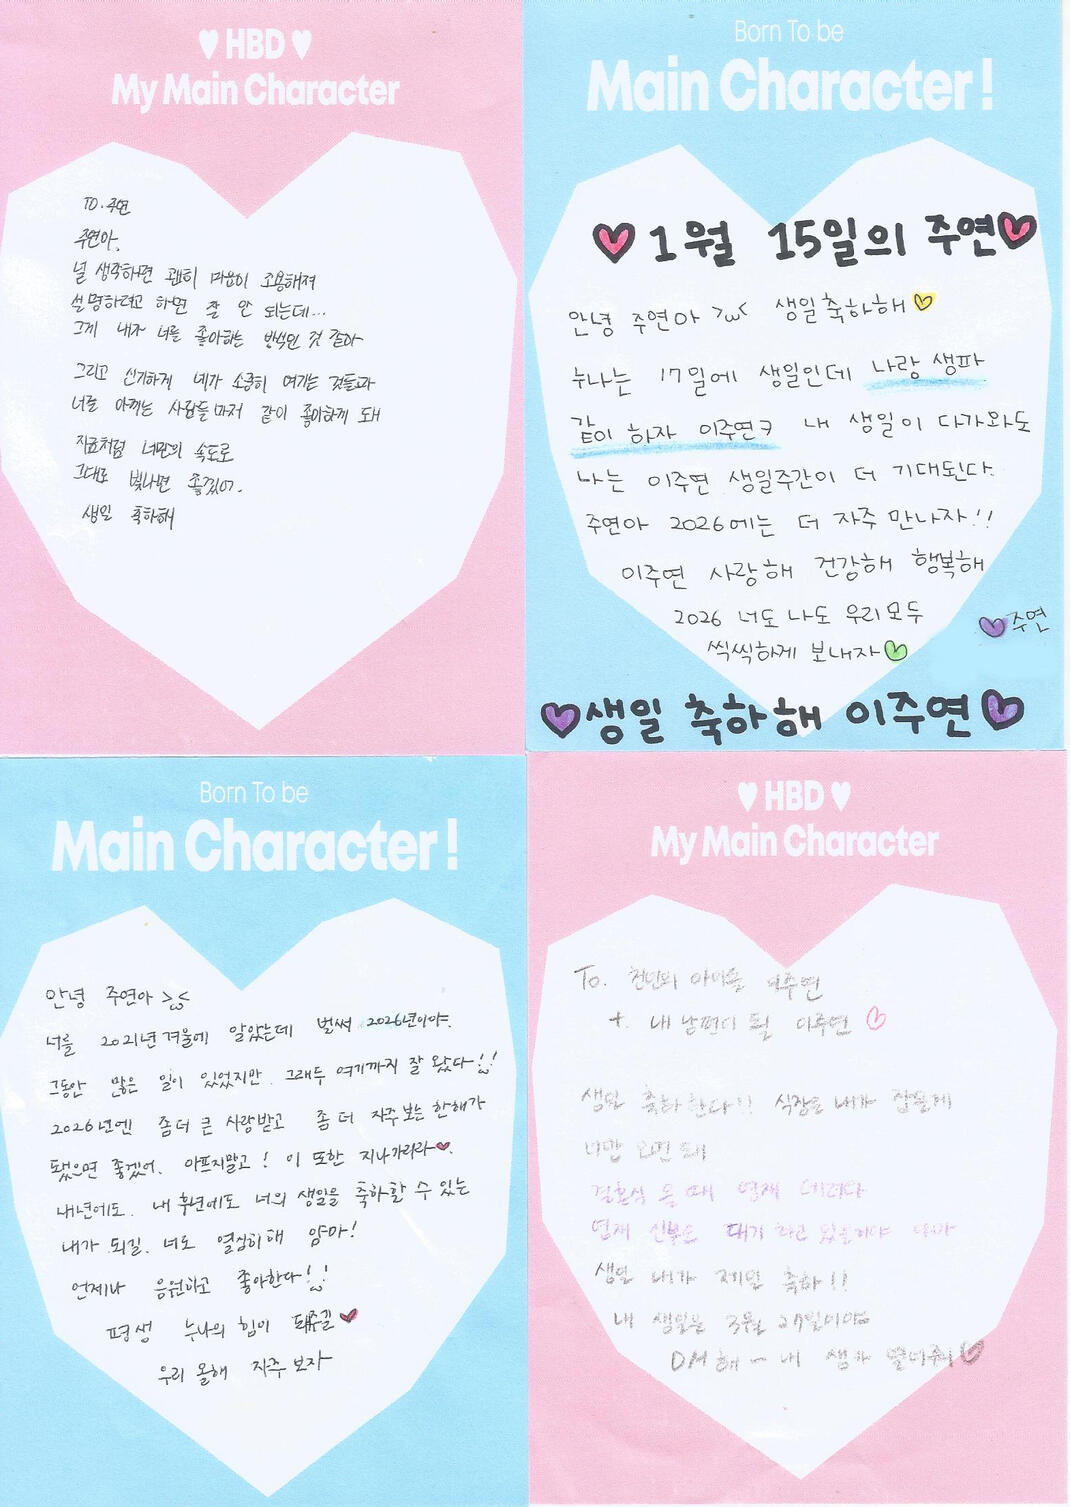 ♥ HBD ♥
My Main Character
TO. 주연
주연아,
널 생각하면 괜히 마음이 조용해져
설명하려고 하면 잘 안 되는데...
그게 내가 너를 좋아하는 방식인 것 같아
그리고 신기하게 네가 소중히 여기는 것들과
너를 아끼는 사람들마저 같이 좋아하게 돼
지금처럼 너만의 속도로
그대로 빛나면 좋겠어.
생일 축하해
Born To be
Main Character!
♥1월 15일의 주연♥
안녕 주연아 >ω< 생일축하해♡
누나는 17일에 생일인데 나랑 생파
같이 하자 이주연ㅋ 내 생일이 다가와도
나는 이주연 생일주간이 더 기대된다
주연아 2026에는 더 자주 만나자!!
이주연 사랑해 건강해 행복해
2026 너도 나도 우리 모두
씩씩하게 보내자♡
♥주연
♥생일 축하해 이주연♥
Born To be
Main Character!
안녕 주연아 >ω<
너를 2021년 겨울에 알았는데 벌써 2026년이야.
그동안 많은 일이 있었지만 그래두 여기까지 잘 왔다!!
2026년엔 좀 더 큰 사랑받고 좀 더 자주 보는 한해가
됐으면 좋겠어. 아프지말고! 이 또한 지나가리라♥
내년에도. 내 후년에도 너의 생일을 축하할 수 있는
내가 되길. 너도 열심히해 얌마!
언제나 응원하고 좋아한다!!
평생 누나의 힘이 돼주길♥
우리 올해 자주 보자
♥ HBD ♥
My Main Character
To. 천만의 아이돌 이주연
+ 내 남편이 될 이주연 ♡
생일 축하한다!! 식장은 내가 잡을게
너만 오면 돼
결혼식 올 때 영재 데려와
영재 신부도 대기 하고 있을거야
생일 내가 제일 축하!!
내 생일은 3월 27일이야
DM해~ 내 생일♥